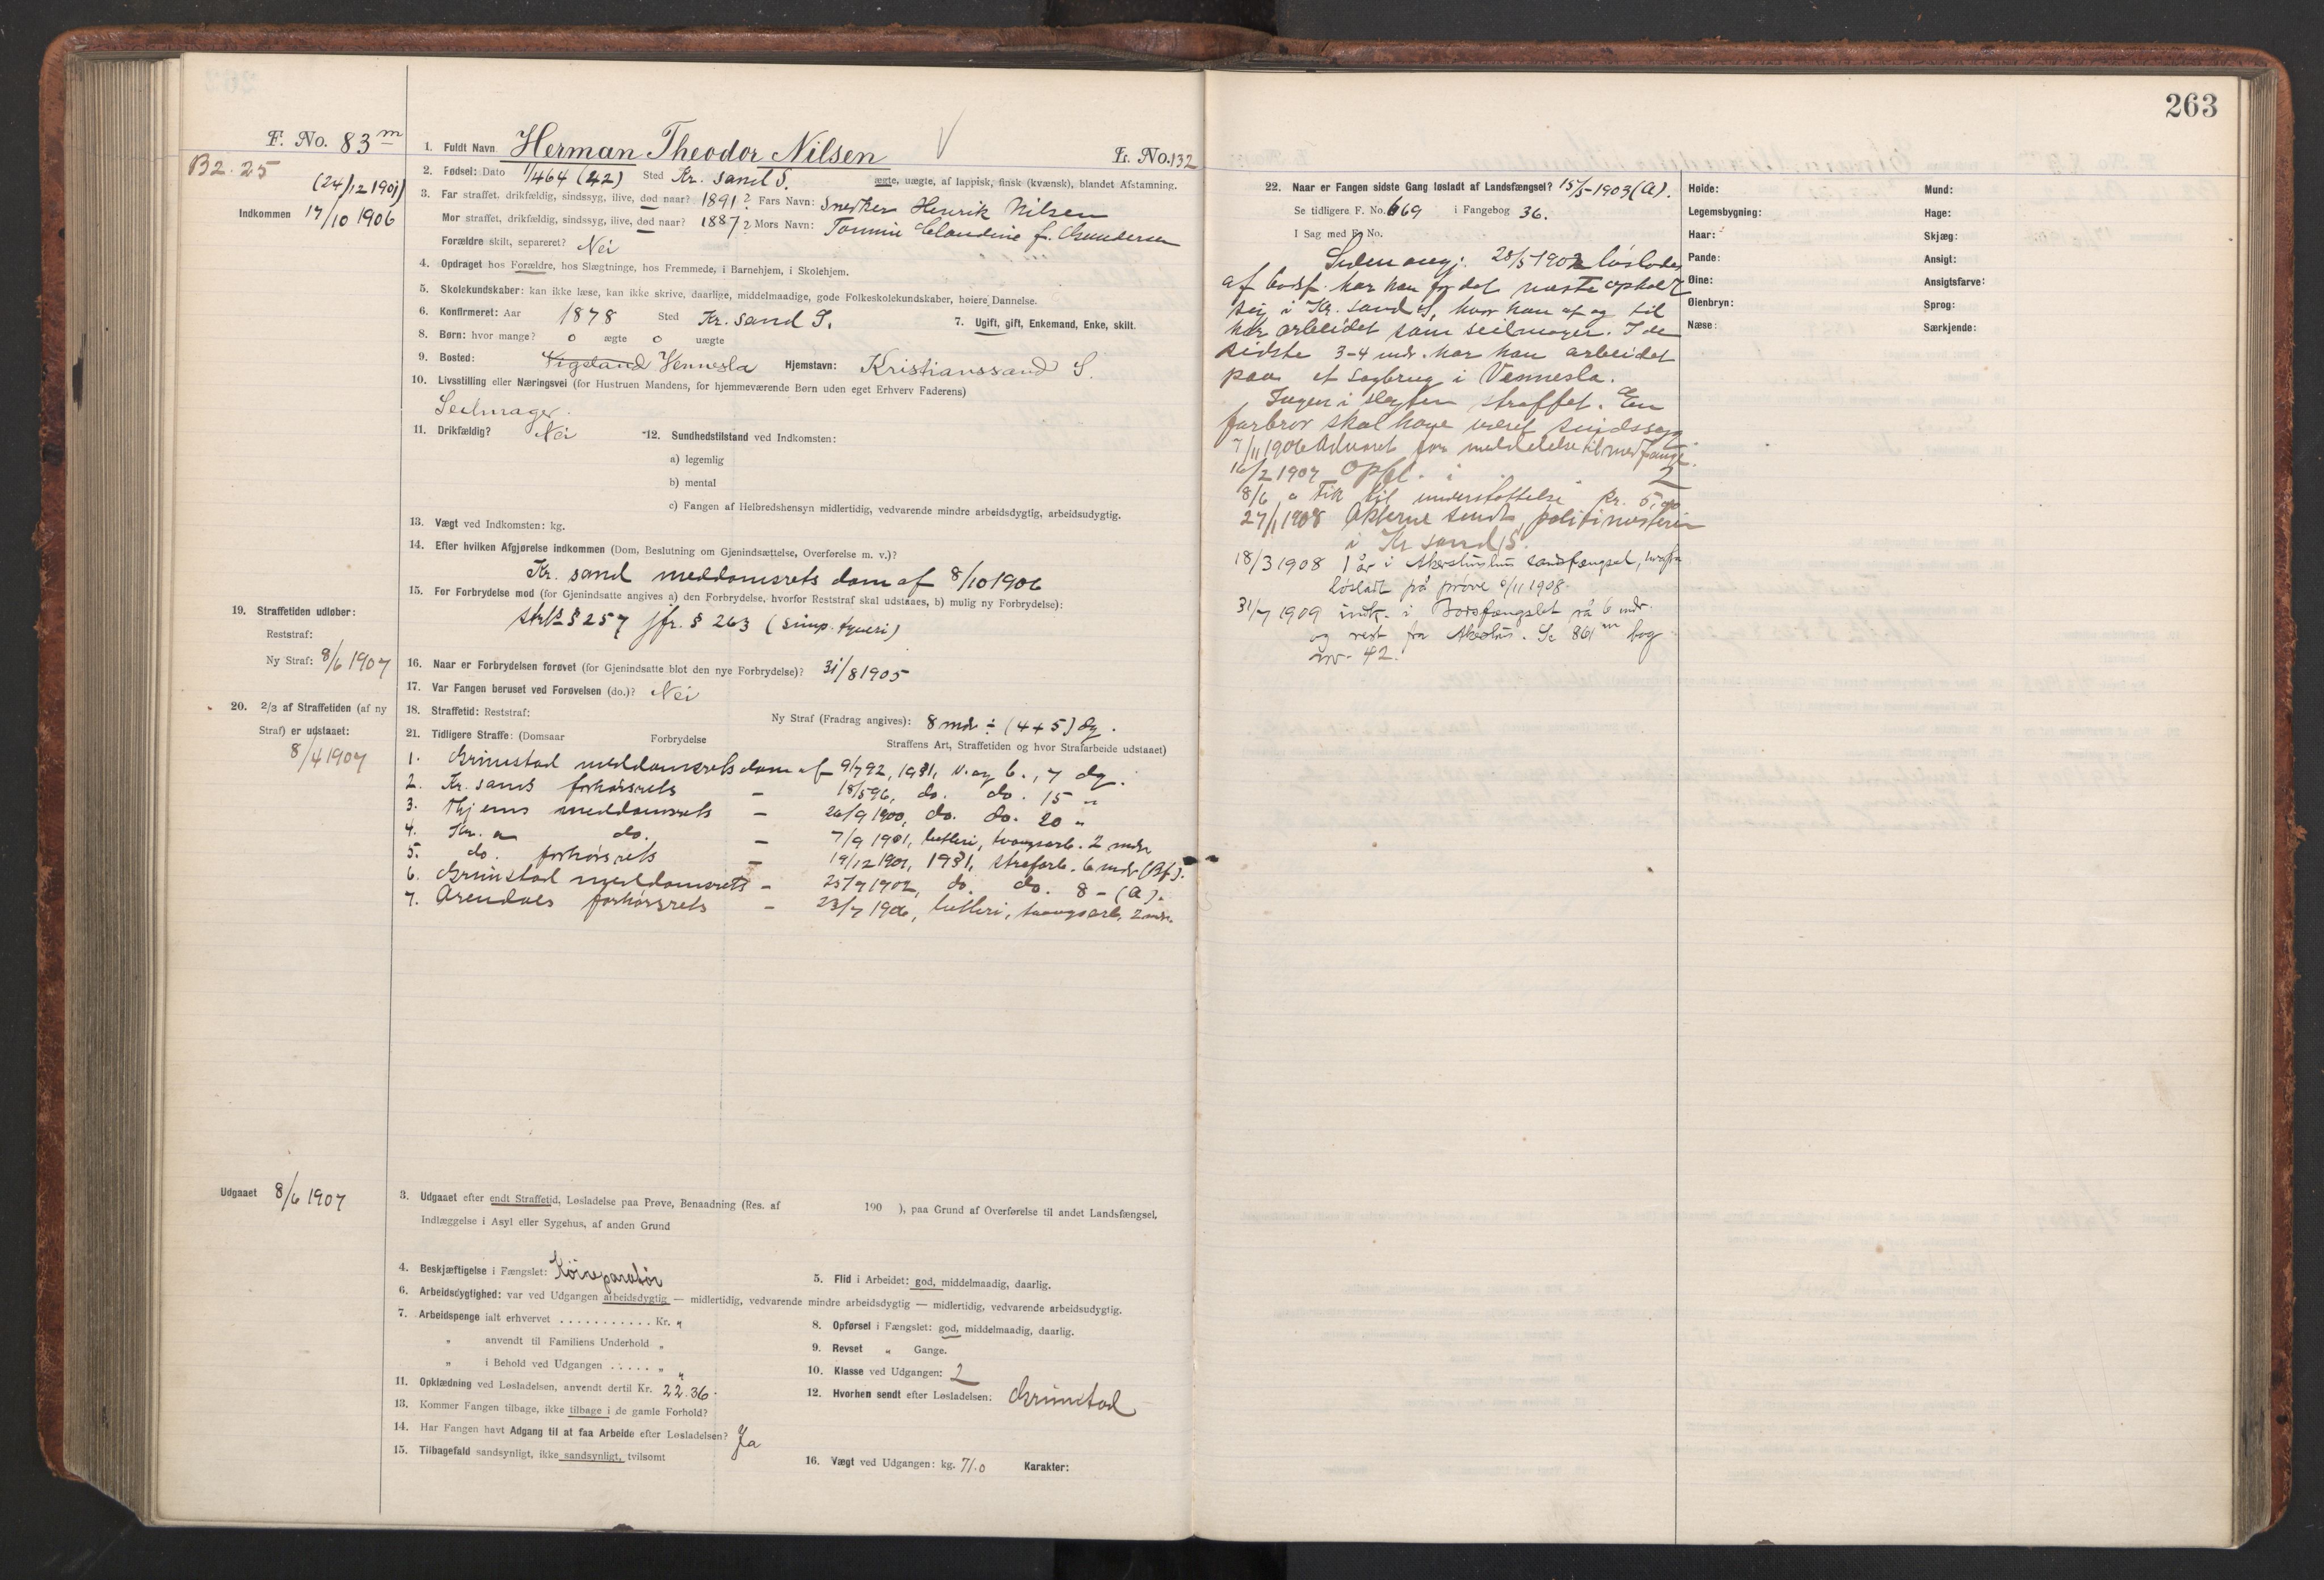 263
F. No. 83 m
B2. 25
(24/12 1901)
Indkommen 17/10 1906
1. Fuldt Navn Herman Theodor Nilsen V L. No. 132
2. Fødsel: Dato 1/4 64 (42) Sted Kr. sand S. ægte, uægte, af lappisk, finsk (kvænsk), blandet Afstamning.
3. Far straffet, drikfældig, sindssyg, ilive, død naar? 1891? Fars Navn: Snedker Henrik Nilsen
Mor straffet, drikfældig, sindssyg, ilive, død naar? 1887? Mors Navn: Tomine Claudine f. Gundersen
Forældre skilt, separeret? Nei
4. Opdraget hos Forældre, hos Slægtninge, hos Fremmede, i Barnehjem, i Skolehjem.
5. Skolekundskaber: kan ikke læse, kan ikke skrive, daarlige, middelmaadige, gode Folkeskolekundskaber, høiere Dannelse.
6. Konfirmeret: Aar 1878 Sted Kr. sand S. 7. Ugift, gift, Enkemand, Enke, skilt.
8. Børn: hvor mange? 0 ægte 0 uægte
9. Bosted: Vigeland Vennesla Hjemstavn: Kristianssand S.
10. Livsstilling eller Næringsvei (for Hustruen Mandens, for hjemmeværende Børn uden eget Erhverv Faderens)
Seilmager.
11. Drikfældig? Nei 12. Sundhedstilstand ved Indkomsten:
a) legemlig
b) mental
c) Fangen af Helbredshensyn midlertidig, vedvarende mindre arbeidsdygtig, arbeidsudygtig.
13. Vægt ved Indkomsten: kg.
14. Efter hvilken Afgjørelse indkommen (Dom, Beslutning om Gjenindsættelse, Overførelse m. v.)?
Kr. sand meddomsrets dom af 8/10 1906
15. For Forbrydelse mod (for Gjenindsatte angives a) den Forbrydelse, hvorfor Reststraf skal udstaaes, b) mulig ny Forbrydelse):
strl. § 257 jfr. § 263 (simp. tyveri)
19. Straffetiden udløber:
Reststraf:
Ny Straf: 8/6 1907
16. Naar er Forbrydelsen forøvet (for Gjenindsatte blot den nye Forbrydelse)? 31/8 1905
17. Var Fangen beruset ved Forøvelsen (do.)? Nei
20. 2/3 af Straffetiden (af ny
Straf) er udstaaet:
8/4 1907
18. Straffetid: Reststraf: Ny Straf (Fradrag angives): 8 mdr ÷ (4+5) dg.
21. Tidligere Straffe: (Domsaar Forbrydelse Straffens Art, Straffetiden og hvor Strafarbeide udstaaet)
1. Grimstad meddomsrets dom af 9/7 92, 1931, v. og b., 7 dg.
2. Kr. sands forhørsrets – 18/5 96, do. do. 15 "
3. meddomsrets – 26/9 1900, do. do. 20 "
4. Kr. a do. – 7/9 1901, betleri, tvangsarb. 2 mdr
5. do. forhørsrets – 19/12 1901, 1931, strafarb. 6 mdr (Bf).
6. Grimstad meddomsrets – 25/7 1902, do. do. 8 – (A).
7. Arendals forhørsrets – 23/7 1906, betleri, tvangsarb. 2 mdr.
Udgaaet 8/6 1907
3. Udgaaet efter endt Straffetid, Løsladelse paa Prøve, Benaadning (Res. af 190 ), paa Grund af Overførelse til andet Landsfængsel,
Indlæggelse i Asyl eller Sygehus, af anden Grund
4. Beskjæftigelse i Fængslet: 5. Flid i Arbeidet: god, middelmaadig, daarlig.
6. Arbeidsdygtighed: var ved Udgangen arbeidsdygtig — midlertidig, vedvarende mindre arbeidsdygtig — midlertidig, vedvarende arbeidsudygtig.
7. Arbeidspenge ialt erhvervet . . . . . . . . . . . Kr. " 8. Opførsel i Fængslet: god, middelmaadig, daarlig.
" anvendt til Familiens Underhold " 9. Revset " Gange.
" i Behold ved Udgangen . . . . . " 10. Klasse ved Udgangen: 2
11. Opklædning ved Løsladelsen, anvendt dertil Kr. 22.36. 12. Hvorhen sendt efter Løsladelsen: Grimstad
13. Kommer Fangen tilbage, ikke tilbage i de gamle Forhold?
14. Har Fangen havt Adgang til at faa Arbeide efter Løsladelsen? Ja
15. Tilbagefald sandsynligt, ikke sandsynligt, tvilsomt 16. Vægt ved Udgangen: kg. 71.0 Karakter:
22. Naar er Fangen sidste Gang løsladt af Landsfængsel? 15/5 1903 (A).
Se tidligere F. No. 669 i Fangebog 36.
I Sag med F. No.
Siden 28/5 1902 løslodes
af bodsf. har han for det meste opholdt
sig i Kr. sand S, hvor han af og til
har arbeidet som seilmager. I de
sidste 3-4 mdr. har han arbeidet
paa et sagbrug i Vennesla.
Ingen i slegten straffet. En
farbror skal have været sindssyg.
7/11 1906 Advaret for meddelelse til medfange.
16/2 1907 Opfl. i 2
8/6 " Fik til understøttelse kr. 5,00
27/1 1908 Akterne sendt politimesteren
i Kr sand S.
18/3 1908 1 år i Akershus landsfængsel, hvorfra
løsladt på prøve 6/11 1908.
31/7 1909 indk. i Bodsfængslet på 6 mdr.
og rest fra Akershus. Se 861 m bog
nr. 42.
Høide: Mund:
Legemsbygning: Hage:
Haar: Skjæg:
Pande: Ansigt:
Øine: Ansigtsfarve:
Øienbryn: Sprog:
Næse: Særkjende: